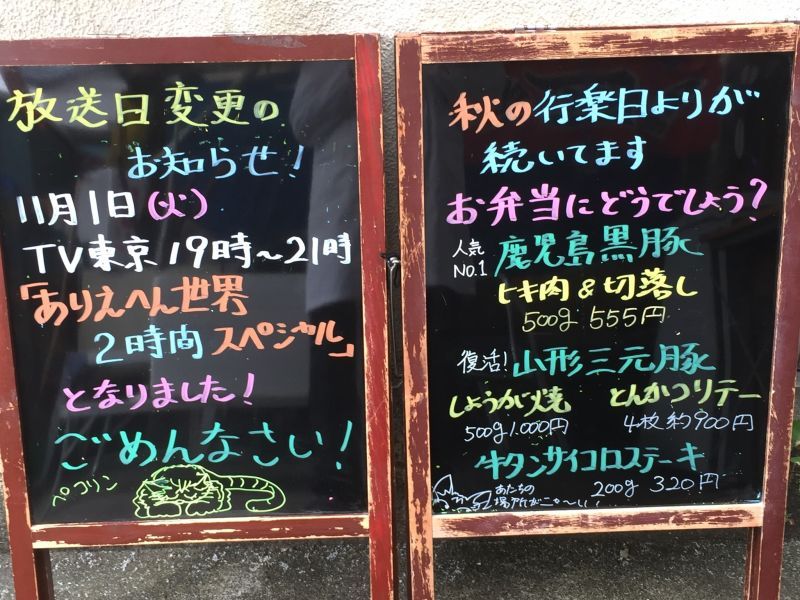 放送日変更の
お知らせ!
11月1日(火)
TV東京19時〜21時
「ありえへん世界
2時間スペシャル」
となりました!
ごめんなさい!
ペコリン
秋の行楽日よりが
続いてます
お弁当にどうでしょう?
人気
NO.1
鹿児島黒豚
ヒキ肉&切落し
500g 555円
復活!山形三元豚
しょうが焼 とんかつリテー
500g 1.000円 4枚約900円
牛タンサイコロステーキ
200g 320円
あたちの
場所がにゃ〜い!